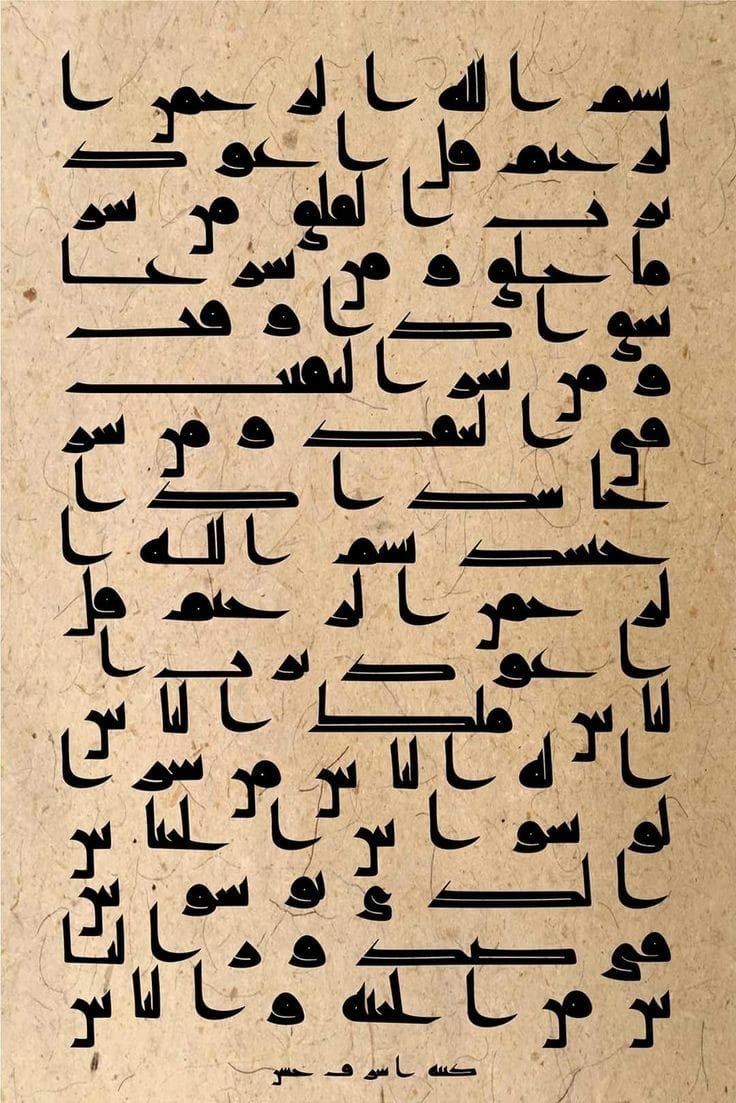 بسم الله الرحمن ا
لرحيم قل اعوذ
برب الفلق من شر
ما خلق و من شر غا
سق اذا وقب
و من شر النفثت
في العقد و من شر
حاسد اذا
حسد بسم الله ا
لرحمن الرحيم قل
اعوذ برب ا
لناس ملك الناس
اله الناس من شر ا
لوسواس الخناس
الذي يوسوس
في صدور النا
س من الجنة و الناس